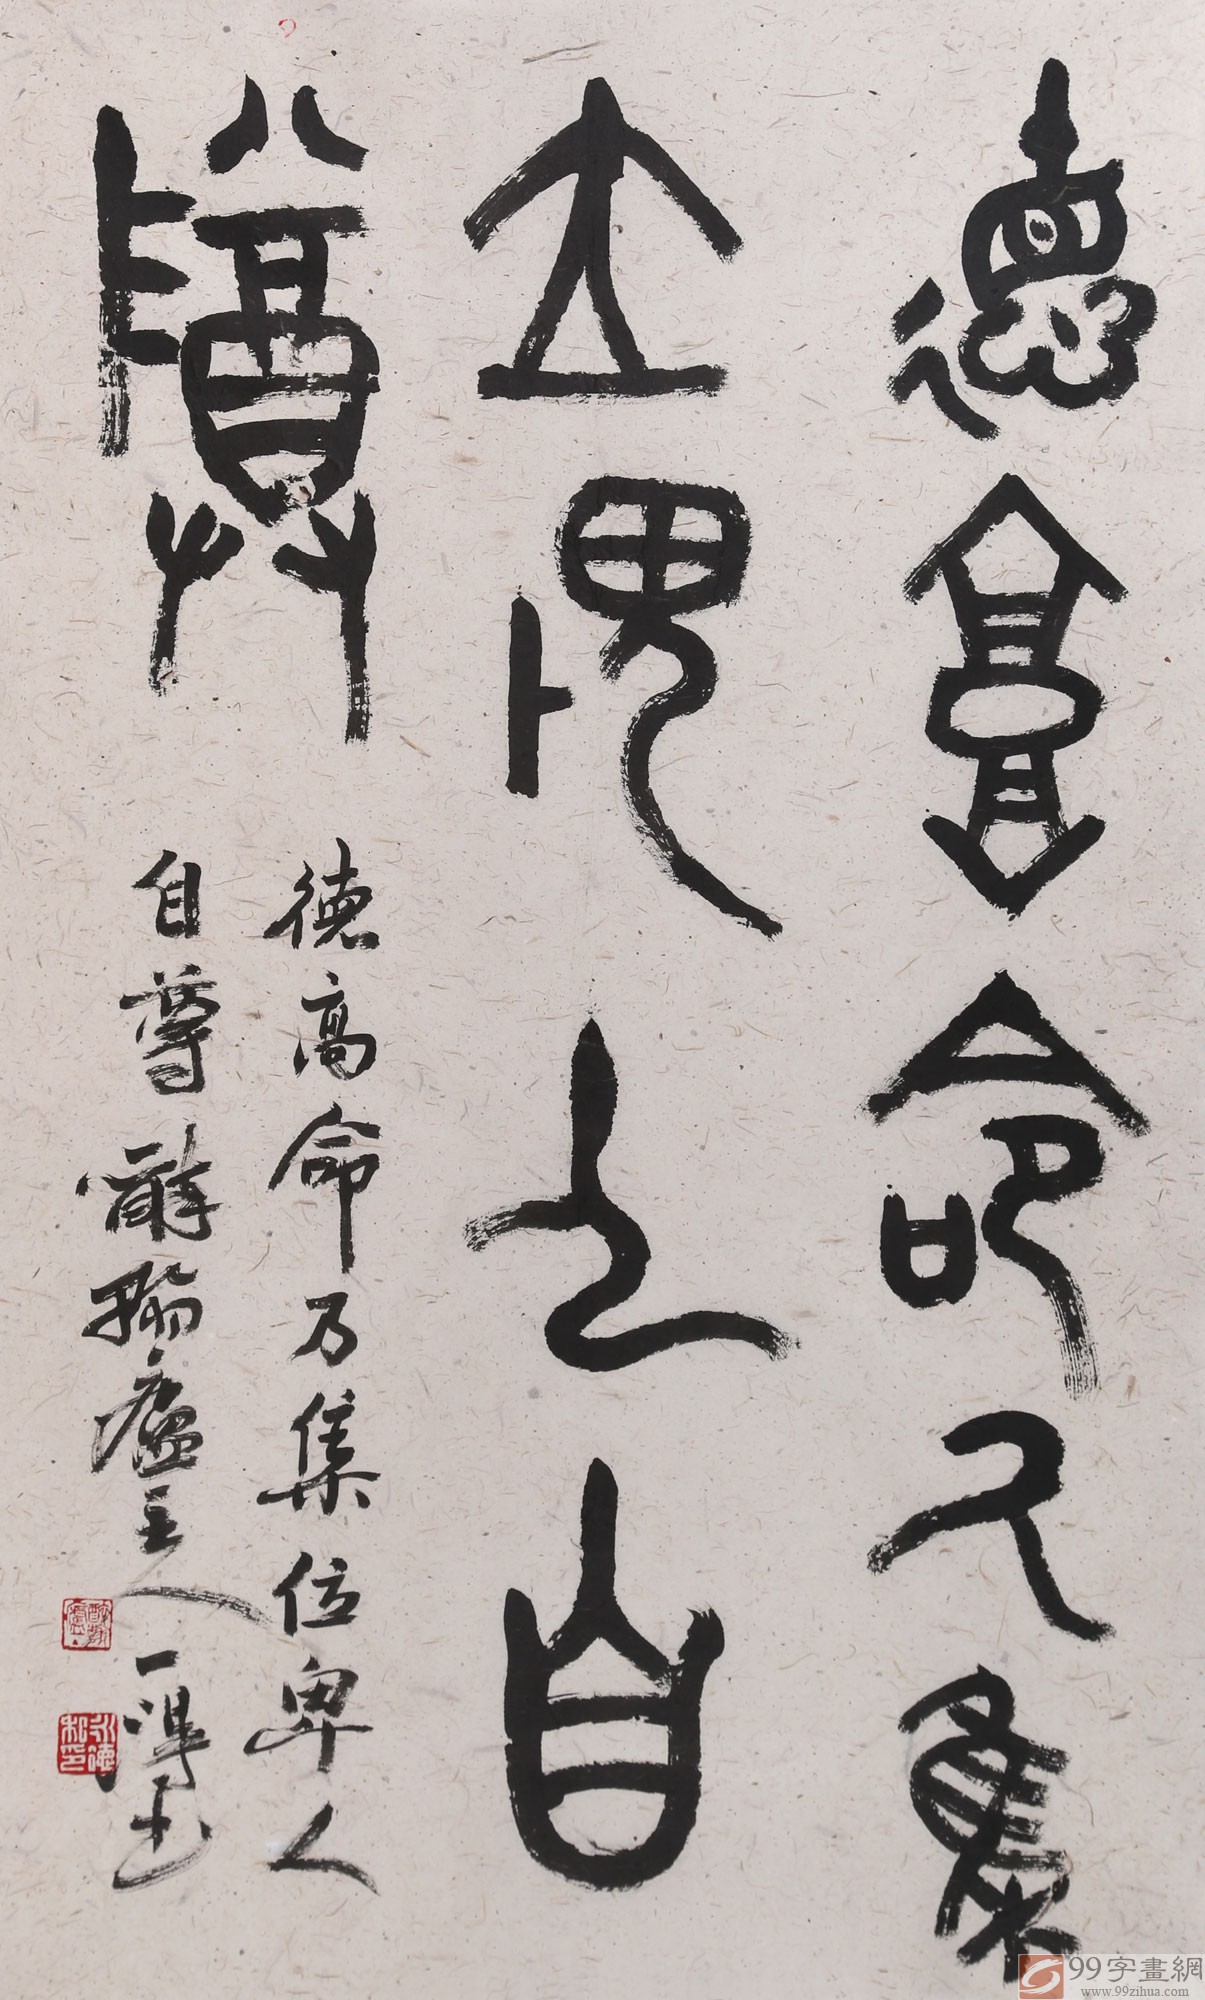 德高命乃集
位卑人自
尊
德高命乃集位卑人
自尊 廬主人一鴻书
99字畫網
www.99zihua.com